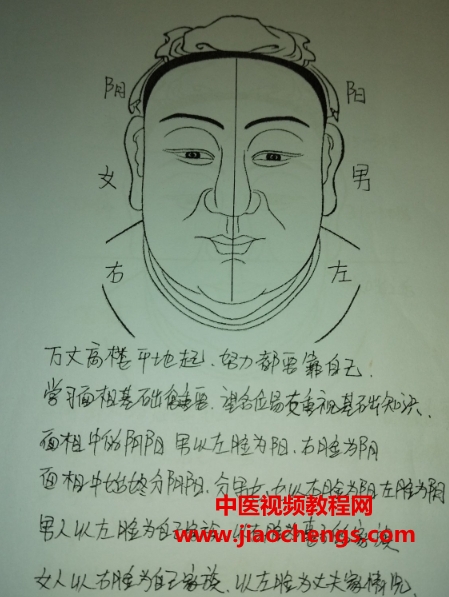 阴 阳
女 男
右 左
万丈高楼平地起，努力都要靠自己.
学习面相基础很重要，望各位易友重视基础知识.
面相中的阴阳 男以左脸为阳，右脸为阴
面相中始终分阴阳，分男女，女以右脸为阳左脸为阴
中医视频教程网
男人以左脸为自己家族
www.jiaochengs.com
女人以右脸为自己家族，以左脸为丈夫家情况.